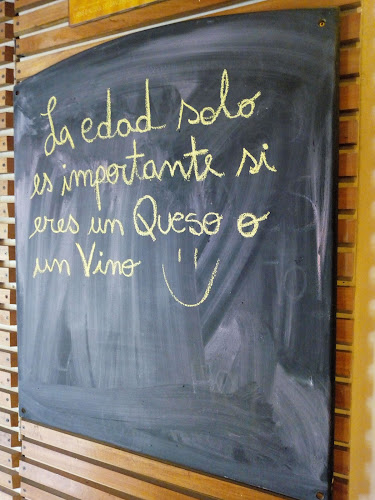 La edad solo
es importante si
eres un Queso o
un Vino